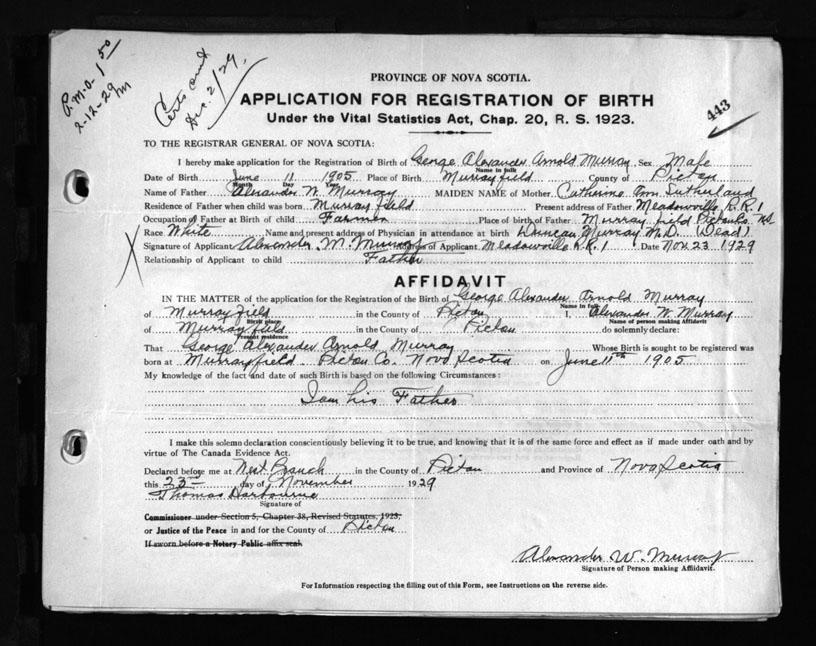 P.M.O. 1 50
2-12-29
Certs and
Dec. 2/29.
443
PROVINCE OF NOVA SCOTIA.
APPLICATION FOR REGISTRATION OF BIRTH
Under the Vital Statistics Act, Chap. 20, R. S. 1923.
TO THE REGISTRAR GENERAL OF NOVA SCOTIA:
I hereby make application for the Registration of Birth of George Alexander Arnold Murray Sex Male
Name in full
Date of Birth June 11 1905 Place of Birth Murrayfield County of Pictou
Month Day Year
Name of Father Alexander W. Murray MAIDEN NAME of Mother Catherine Ann Sutherland
Residence of Father when child was born Murrayfield Present address of Father Meadowville R.R. 1
Occupation of Father at Birth of child Farmer Place of birth of Father Murrayfield Pictou Co. N.S.
Race White Name and present address of Physician in attendance at birth Duncan Murray M.D. (Dead)
Signature of Applicant Alexander. W. Murray Address of Applicant Meadowville R.R. 1 Date Nov. 23 1929
Relationship of Applicant to child Father
AFFIDAVIT
IN THE MATTER of the application for the Registration of the Birth of George Alexander Arnold Murray
Name in full
of Murrayfield in the County of Pictou I, Alexander W. Murray
Birth place Name of person making Affidavit
of Murrayfield in the County of Pictou do solemnly declare:
Present residence
That George Alexander Arnold Murray Whose Birth is sought to be registered was
born at Murrayfield Pictou Co. Nova Scotia on June 11th 1905
My knowledge of the fact and date of such Birth is based on the following Circumstances:
I am his Father
I make this solemn declaration conscientiously believing it to be true, and knowing that it is of the same force and effect as if made under oath and by
virtue of The Canada Evidence Act.
Declared before me at West Branch in the County of Pictou and Province of Nova Scotia
this 23rd day of November 1929
Thomas Harbourne
Signature of
Commissioner under Section 5, Chapter 38, Revised Statutes, 1923,
or Justice of the Peace in and for the County of Pictou
If sworn before a Notary Public affix seal.
Alexander W. Murray
Signature of Person making Affidavit.
For Information respecting the filling out of this Form, see Instructions on the reverse side.